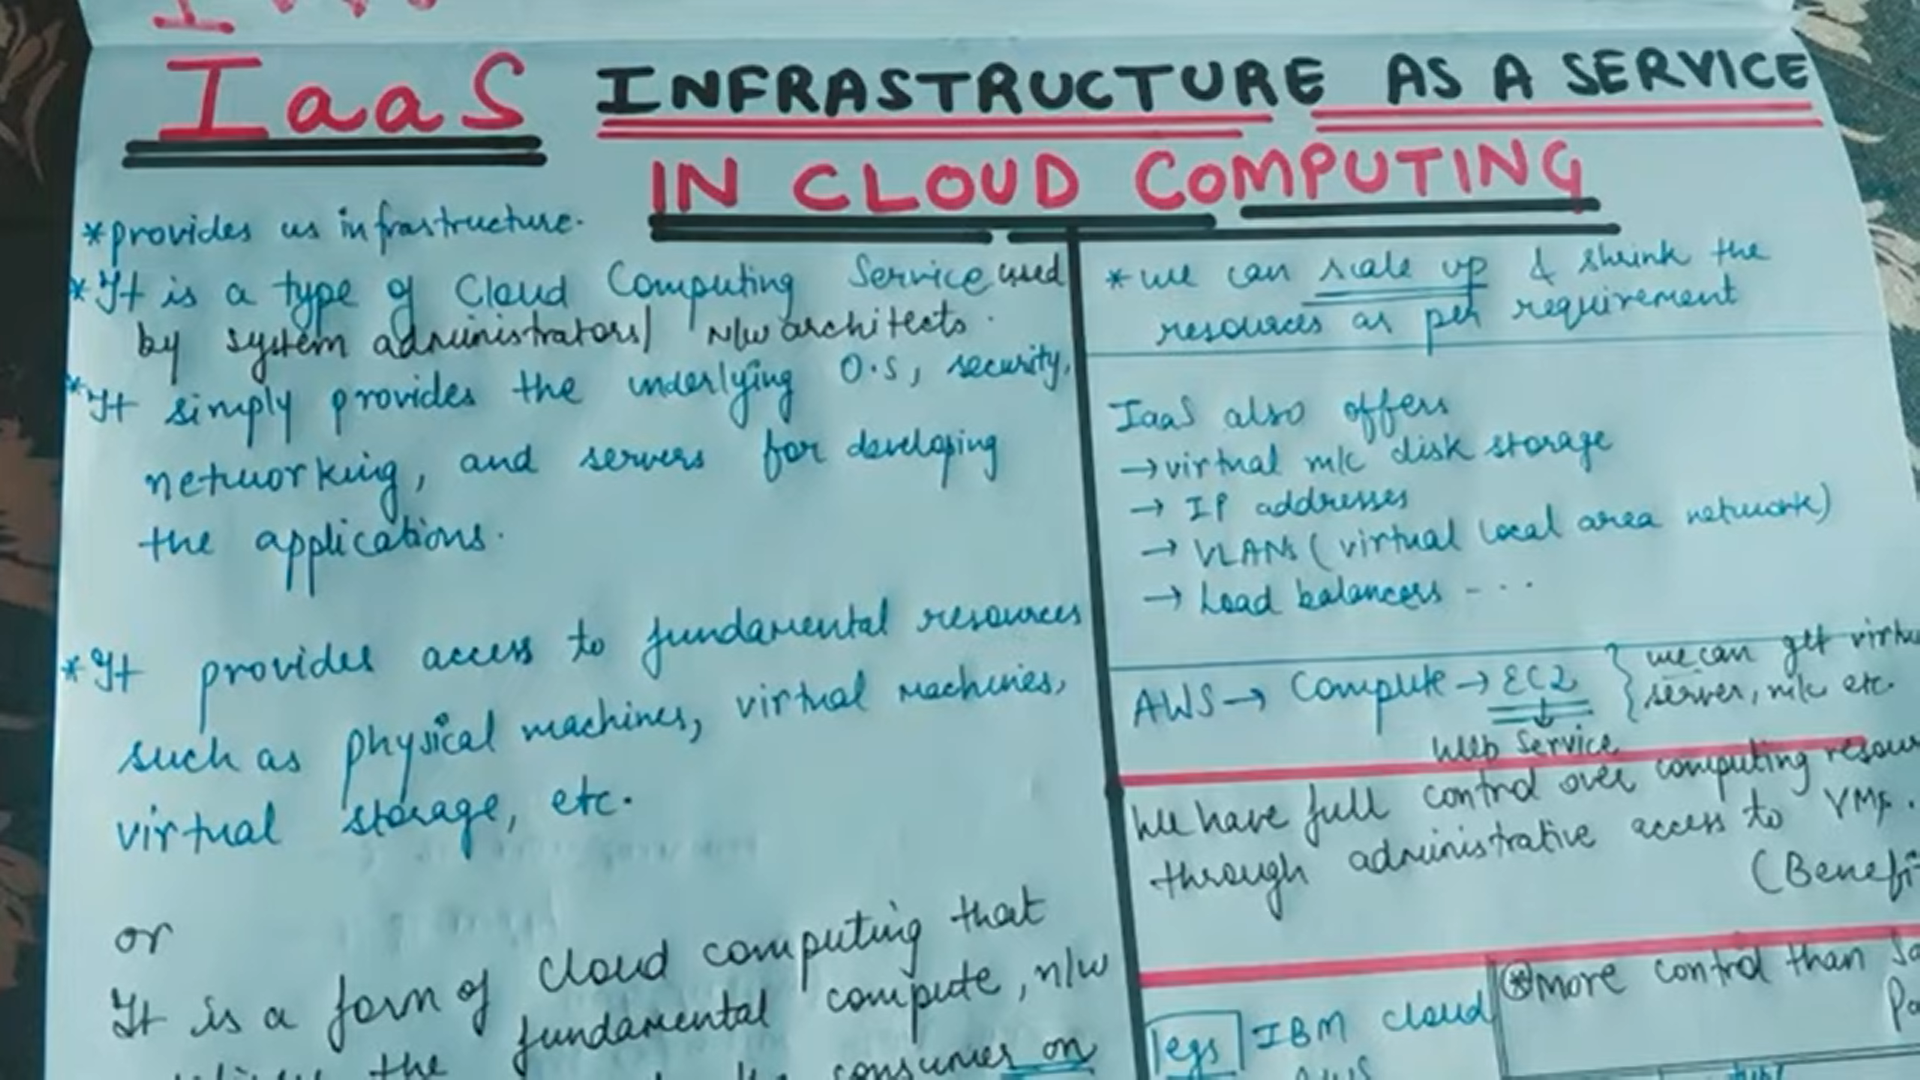 IaaS INFRASTRUCTURE AS A SERVICE
IN CLOUD COMPUTING
*provides us infrastructure.
*It is a type of Cloud Computing Service used
by system administrators/ N/w architects.
*It simply provides the underlying O.S, security,
networking, and servers for developing
the applications.
*It provides access to fundamental resources
such as physical machines, virtual machines,
virtual storage, etc.
or
It is a form of cloud computing that
fundamental compute, n/w
the
consumers on
*we can scale up & shrink the
resources as per requirement
IaaS also offers
→virtual m/c disk storage
→ IP addresses
→ VLANs (virtual local area network)
→ Load balancers - ...
AWS → Compute → EC2 } we can get
server, m/c etc.
Web Service
We have full control over computing
through administrative access to VMs.
*more control than
egs IBM cloud
AWS